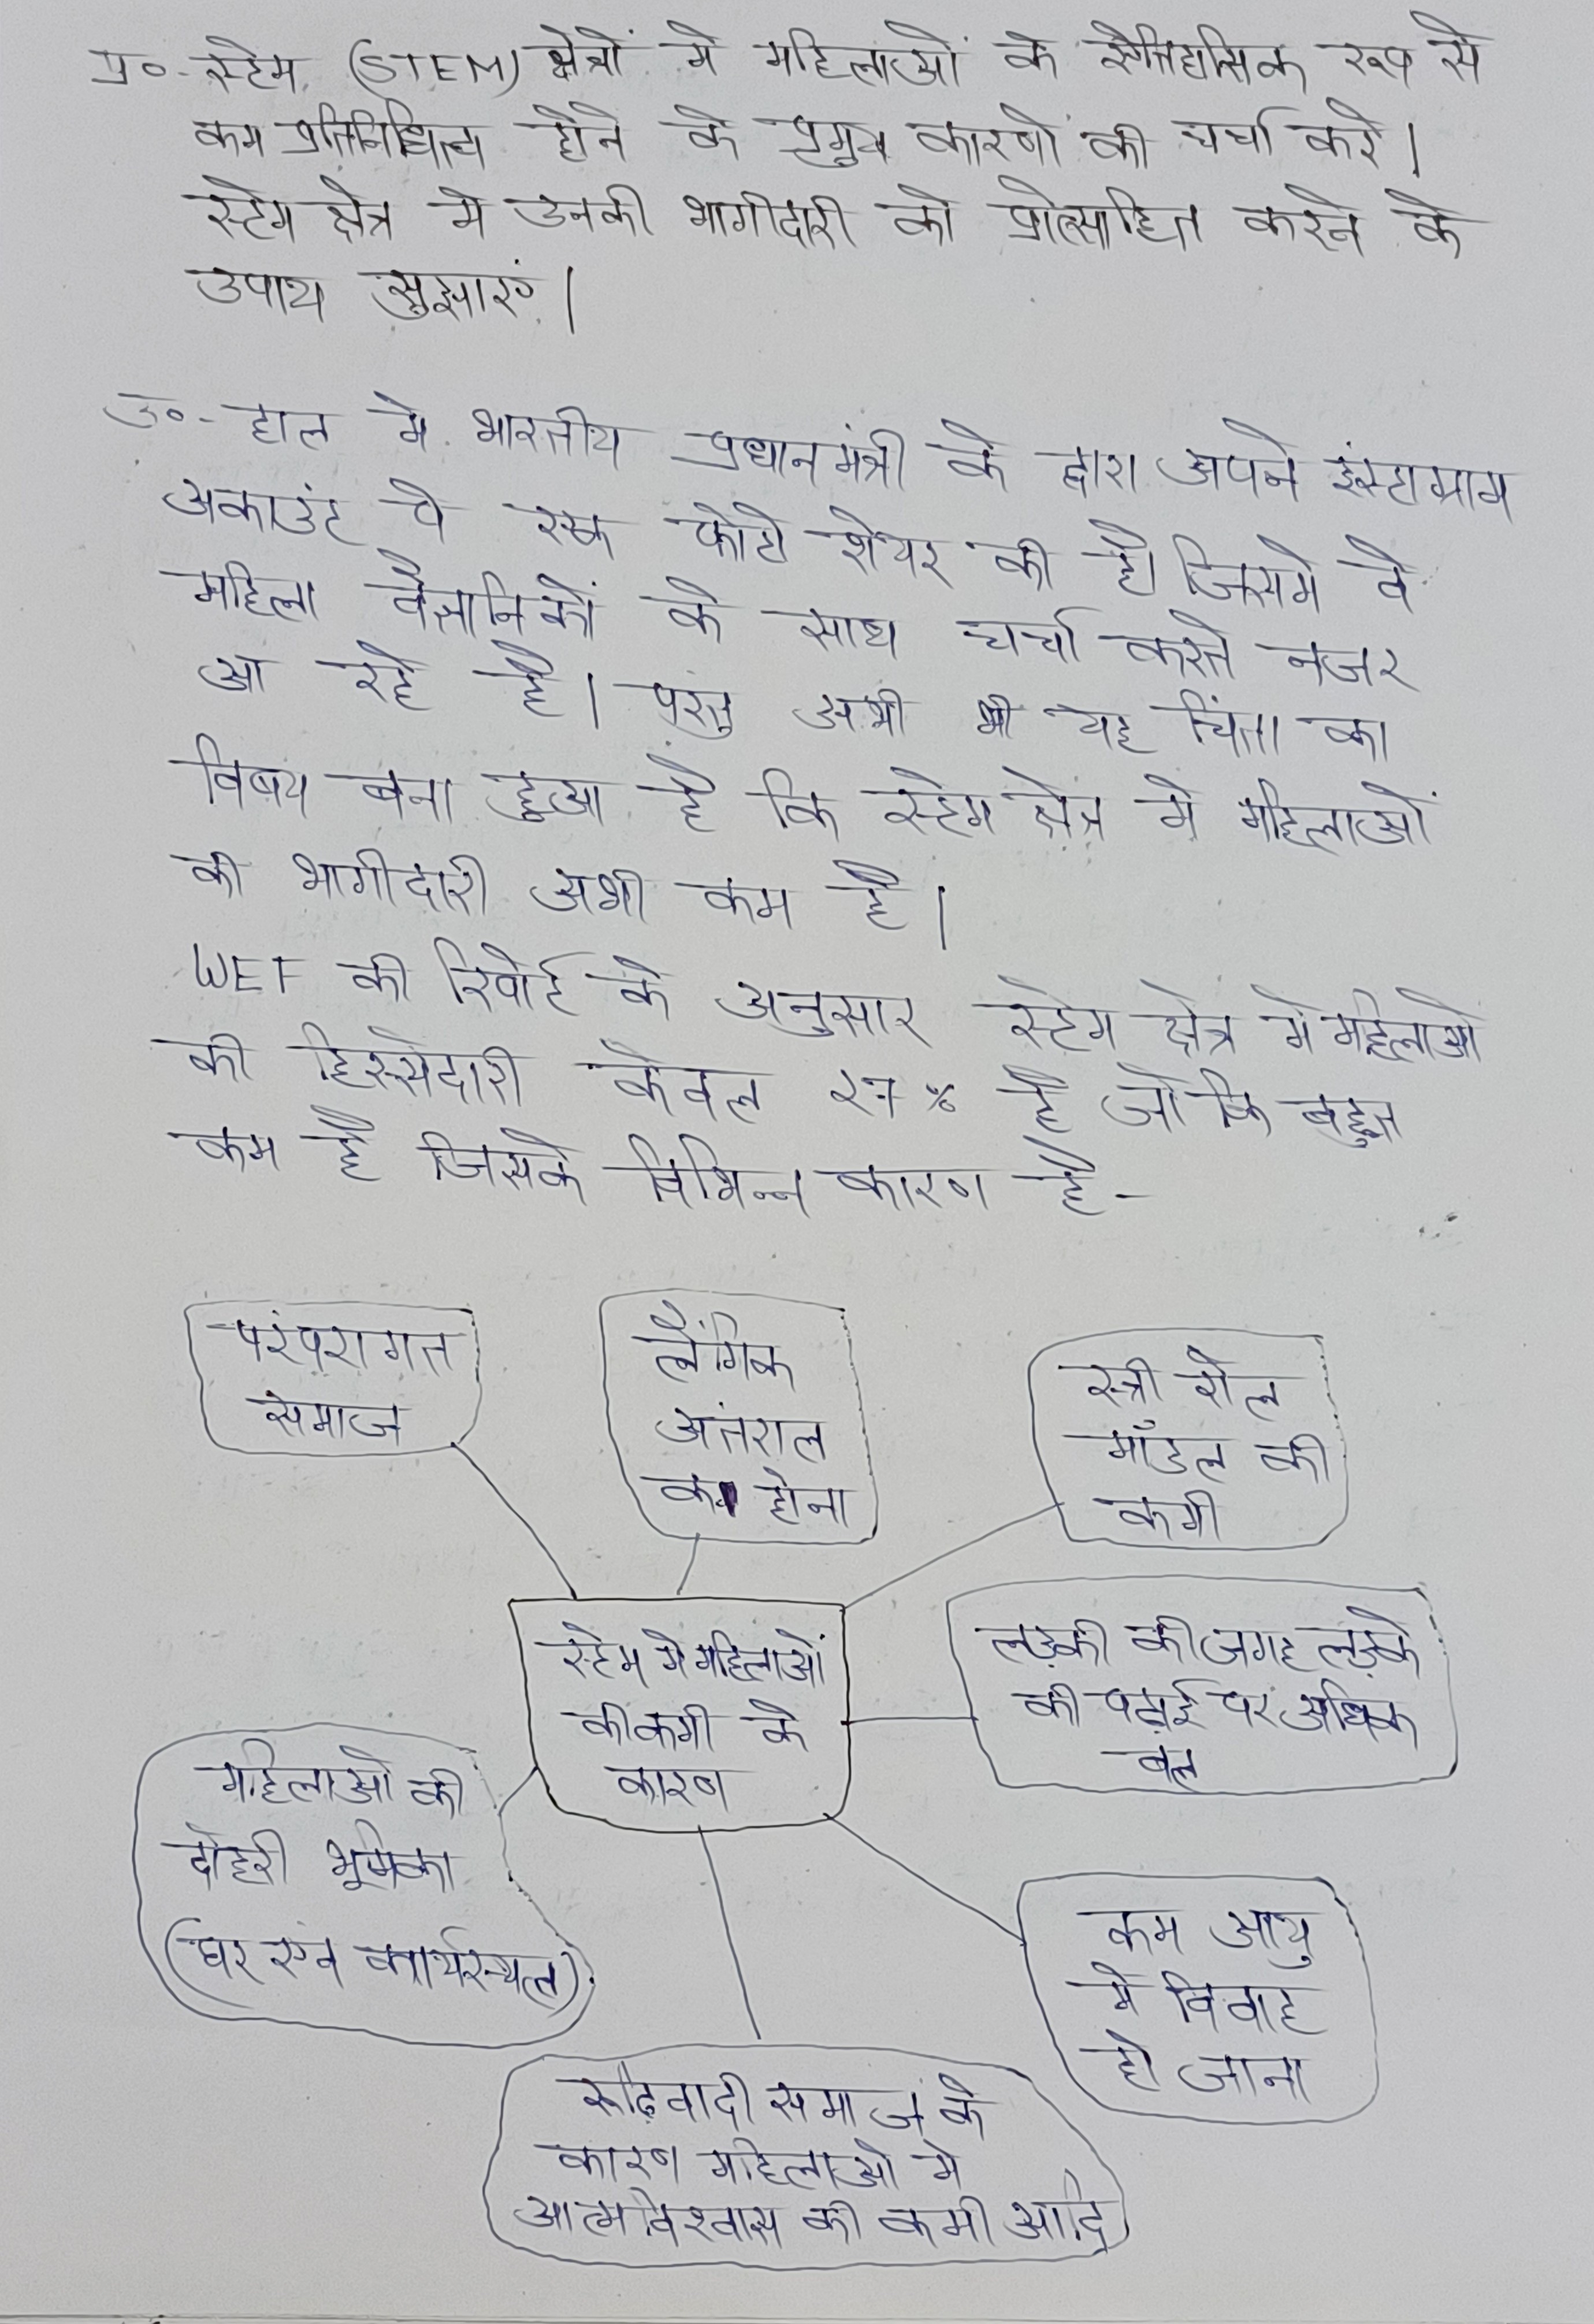 प्र०- स्टेम (STEM) क्षेत्रों में महिलाओं के ऐतिहासिक रूप से
कम प्रतिनिधित्व होने के प्रमुख कारणों की चर्चा करें।
स्टेम क्षेत्र में उनकी भागीदारी को प्रोत्साहित करने के
उपाय सुझाएं।
उ०- हाल में भारतीय प्रधानमंत्री के द्वारा अपने इंस्टाग्राम
अकाउंट पे एक फोटो शेयर की है। जिसमें वे
महिला वैज्ञानिकों के साथ चर्चा करते नजर
आ रहे है। परंतु अभी भी यह चिंता का
विषय बना हुआ है कि स्टेम क्षेत्र में महिलाओं
की भागीदारी अभी कम है।
WEF की रिपोर्ट के अनुसार स्टेम क्षेत्र में महिलाओ
की हिस्सेदारी केवल 27% है जो कि बहुत
कम है जिसके विभिन्न कारण है-
परंपरागत
समाज
लैंगिक
अंतराल
का होना
स्त्री रोल
मॉडल की
कमी
स्टेम में महिलाओं
की कमी के
कारण
लड़की की जगह लड़के
की पढ़ाई पर अधिक
बल
महिलाओ की
दोहरी भूमिका
(घर एवं कार्यस्थल)
कम आयु
में विवाह
हो जाना
रूढ़िवादी समाज के
कारण महिलाओ में
आत्मविश्वास की कमी आदि